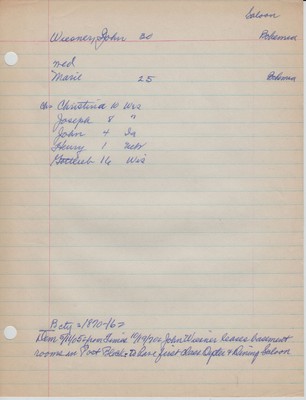 Saloon
Wiesner, John 30 Bohemia
md
Marie 25 Bohemia
ch- Christina 10 Wis
Joseph 8 "
John 4 Ia
Henry 1 Nebr
Gottlieb 16 Wis
Bcty = 1870-162
Item upon John Wiesner leases basement
rooms in Block to have first class Oyster & Dining Saloon